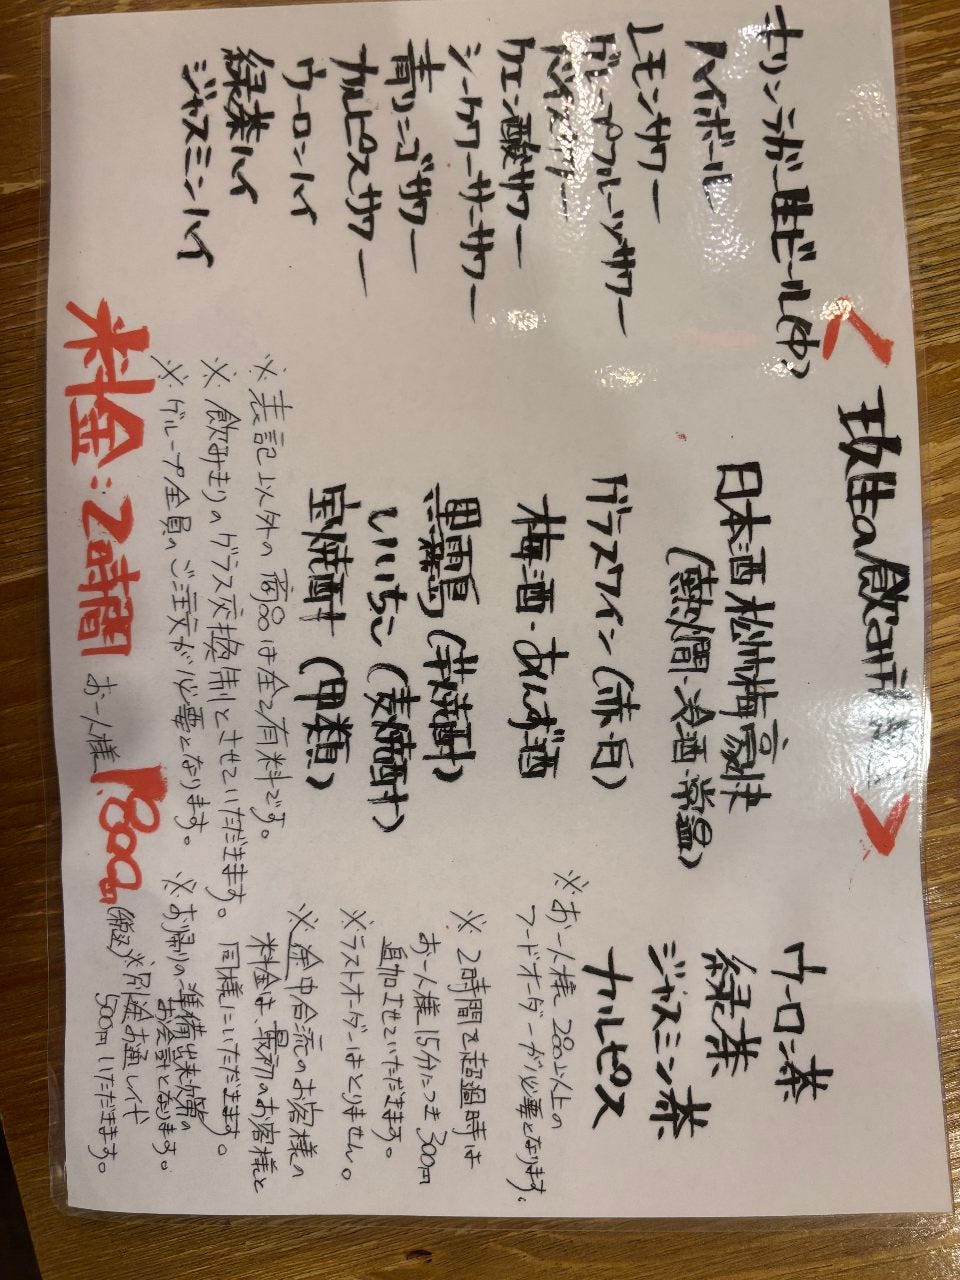 の飲み放題
キリンラガー生ビール(中)
ハイボール
レモンサワー
グレープフルーツサワー
サワー
クエン酸サワー
シークワーサーサワー
青リンゴサワー
カルピスサワー
ウーロンハイ
緑茶ハイ
ジャスミンハイ
日本酒 松竹梅豪快
(熱燗・冷酒・常温)
グラスワイン(赤・白)
梅酒・あんず酒
黒霧島(芋焼酎)
いいちこ(麦焼酎)
宝焼酎(甲類)
ウーロン茶
緑茶
ジャスミン茶
カルピス
※お一人様2品以上の
フードオーダーが必要となります。
※2時間を超過時は
お一人様15分につき300円
追加させていただきます。
※ラストオーダーはとりません。
※途中合流のお客様の
料金は最初のお客様と
同様にいただきます。
※お帰りの準備出来次第の
お会計となります。
※表記以外の商品は全て有料です。
※飲みきりのグラス交換制とさせていただきます。
※グループ全員のご注文が必要となります。
料金:2時間 お一人様 1,800円(税込)
※別途お通し代
500円いただきます。